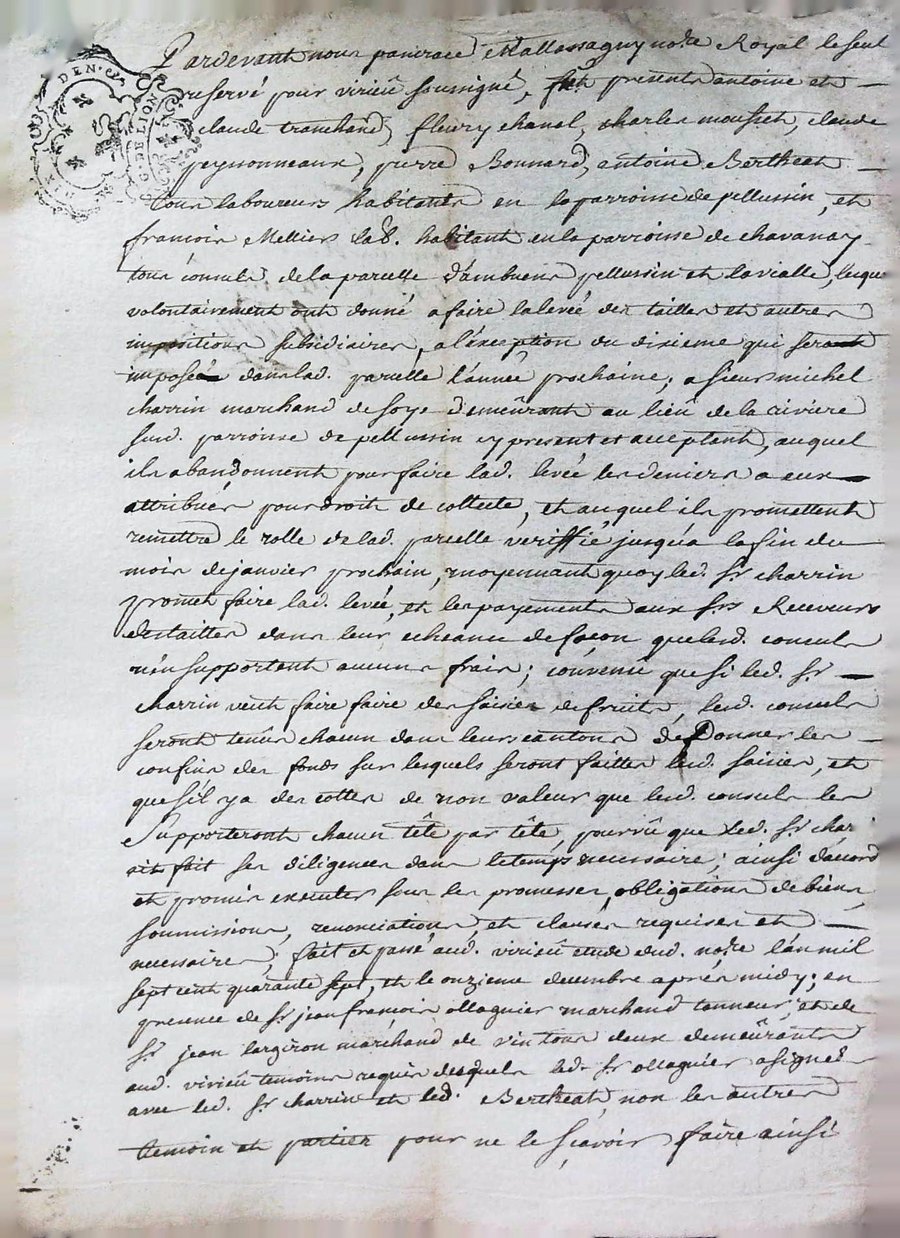 DEN. ET
G. DE LION
Pardevant nous pancrace Mallassagny no.re Royal le seul
reservé pour virieû soussigné, présents antoine et
claude tranchand, fleury chanal, charles mousset, claude
peyssonneaux, pierre Bonnard, antoine Bertheat
tous laboureurs habitants en la parroisse de pellussin, et
francois Mellier lab. habitant en la parroisse de chavanay
tous consuls de la parcelle d'ambuens pellussin et la vialle, lesque
volontairement ont donné a faire la levée des tailles et autres
impositions subsidiaires, a l'exception du dixieme qui seront
imposéé dans lad. parcelle l'année prochaine; a sieur michel
charrin marchand de soye demeûrant au lieû de la riviere
susd. parroisse de pellussin cy present et acceptant, auquel
ils abandonnent pour faire lad. levée les deniers a eux
attribués pour droit de collecte, et auquel ils promettent
remettre le rolle de lad. parcelle veriffié jusqu'a la fin du
mois de janvier prochain, moyennant quoy led. sr. charrin
promet faire lad. levée, et les payements aux srs. Receveurs
des tailles dans leur echeance de façon que lesd. consuls
n'en supportent aucuns frais; convenû que si led. sr.
charrin veut faire faire des saisies de fruits, lesd. consuls
seront tenûs chacun dans leurs cantons de Donner les
confins des fonds sur lesquels seront faittes lesd. saisies, et
que s'il y a des cottes de non valeur que lesd. consuls les
Supporteront chacun tête par tête, pourvû que led. sr. char
ait fait ses diligences dans le temps necessaire; ainsi d'acord
et promis executer sous les promesses, obligations de biens,
soumissions, renonciations, et clauses requises et
necessaires; fait et passé aud. virieû etude dud. no.re l'an mil
sept cent quarante sept, et le onzieme decembre après midy; en
presence de sr. jean francois ollagnier marchand tanneur, et de
sr. jean largiron marchand de vin tous deux demeûrants
aud. virieû temoins requis desquels led. sr. ollagnier a signé
avec led. sr. charrin et led. Bertheat, non les autres
temoin et parties pour ne le sçavoir faire ainsi